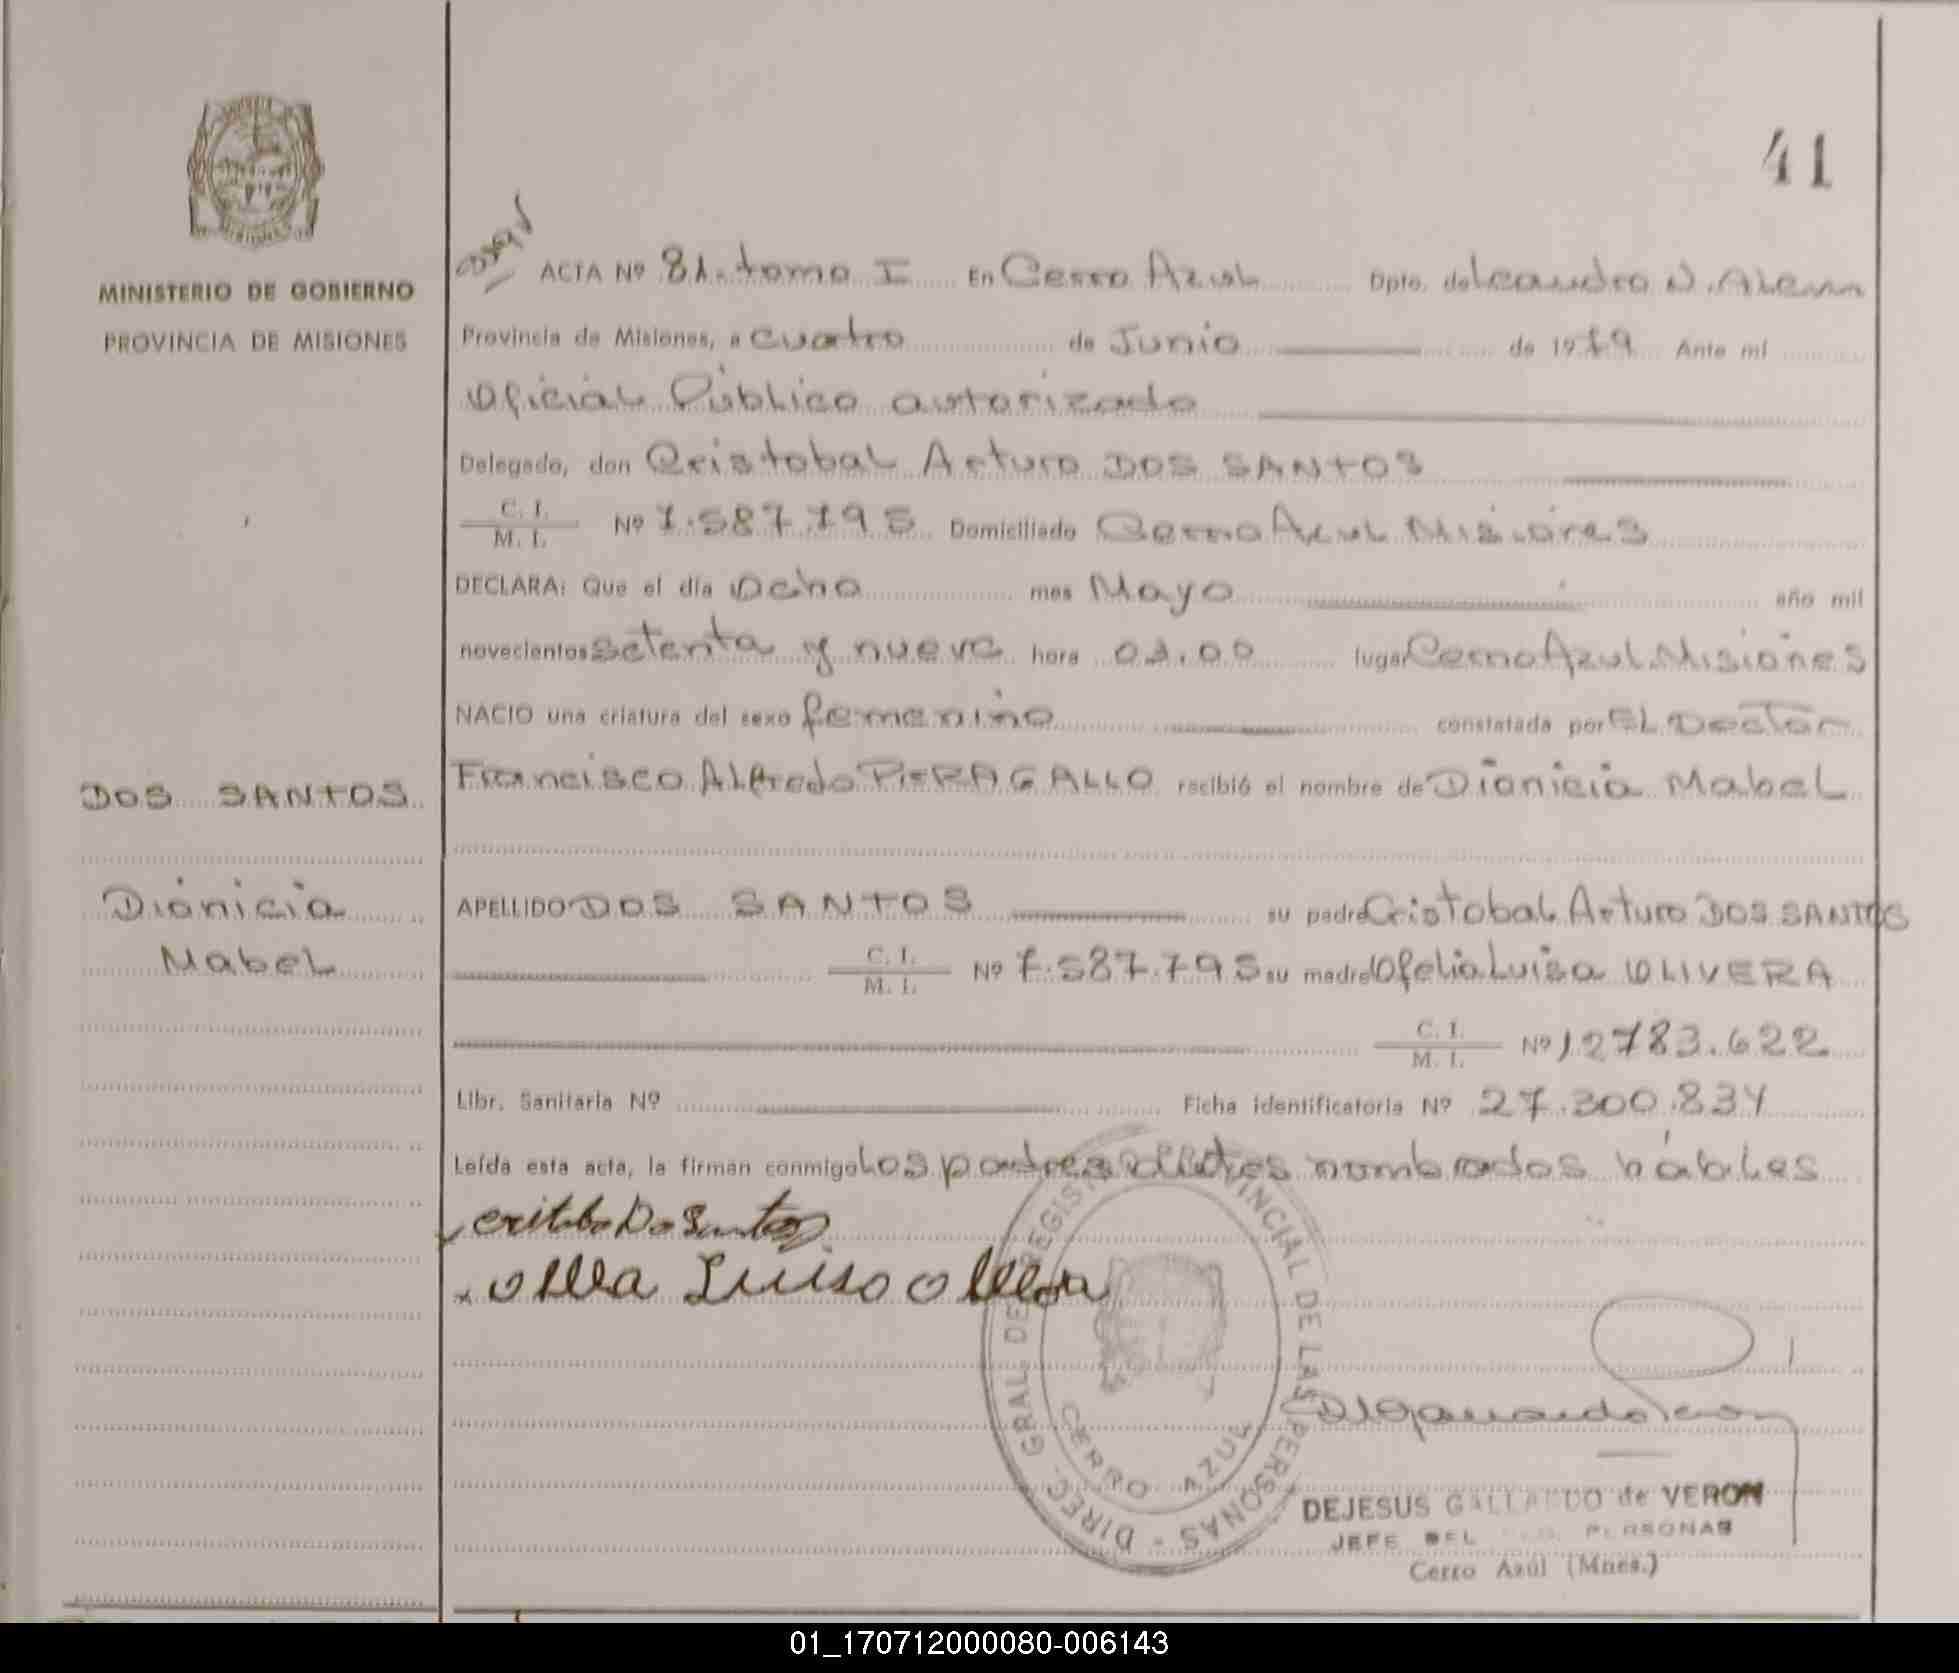 41
MINISTERIO DE GOBIERNO
PROVINCIA DE MISIONES
ACTA Nº 81. tomo I En Cerro Azul Dpto. de Leandro N. Alem
Provincia de Misiones, a cuatro de Junio de 1979 Ante mí
Oficial Público autorizado
Delegado, don Cristobal Arturo DOS SANTOS
C. I. / M. I. Nº 7.587.795 Domiciliado Cerro Azul Misiones
DECLARA: Que el día Ocho mes Mayo año mil
novecientos setenta y nueve hora lugar Cerro Azul. Misiones
NACIO una criatura del sexo femenino constatada por EL Doctor
Francisco Alfredo PIERAGALLO recibió el nombre de Dionicia Mabel
APELLIDO DOS SANTOS su padre Cristobal Arturo DOS SANTOS
C. I. / M. I. Nº 7.587.795 su madre Ofelia Luisa OLIVERA
C. I. / M. I. Nº 12783.622
Libr. Sanitaria Nº Ficha identificatoria Nº 27.300.834
Leída esta acta, la firman conmigo Los padres nombrados hábiles
DOS SANTOS
Dionicia
Mabel
DIREC. GRAL. DE REGISTRO PROVINCIAL DE LAS PERSONAS -
CERRO AZUL
DEJESUS GALLARDO de VERON
JEFE DEL PERSONAS
Cerro Azúl (Mnes.)
01_170712000080-006143